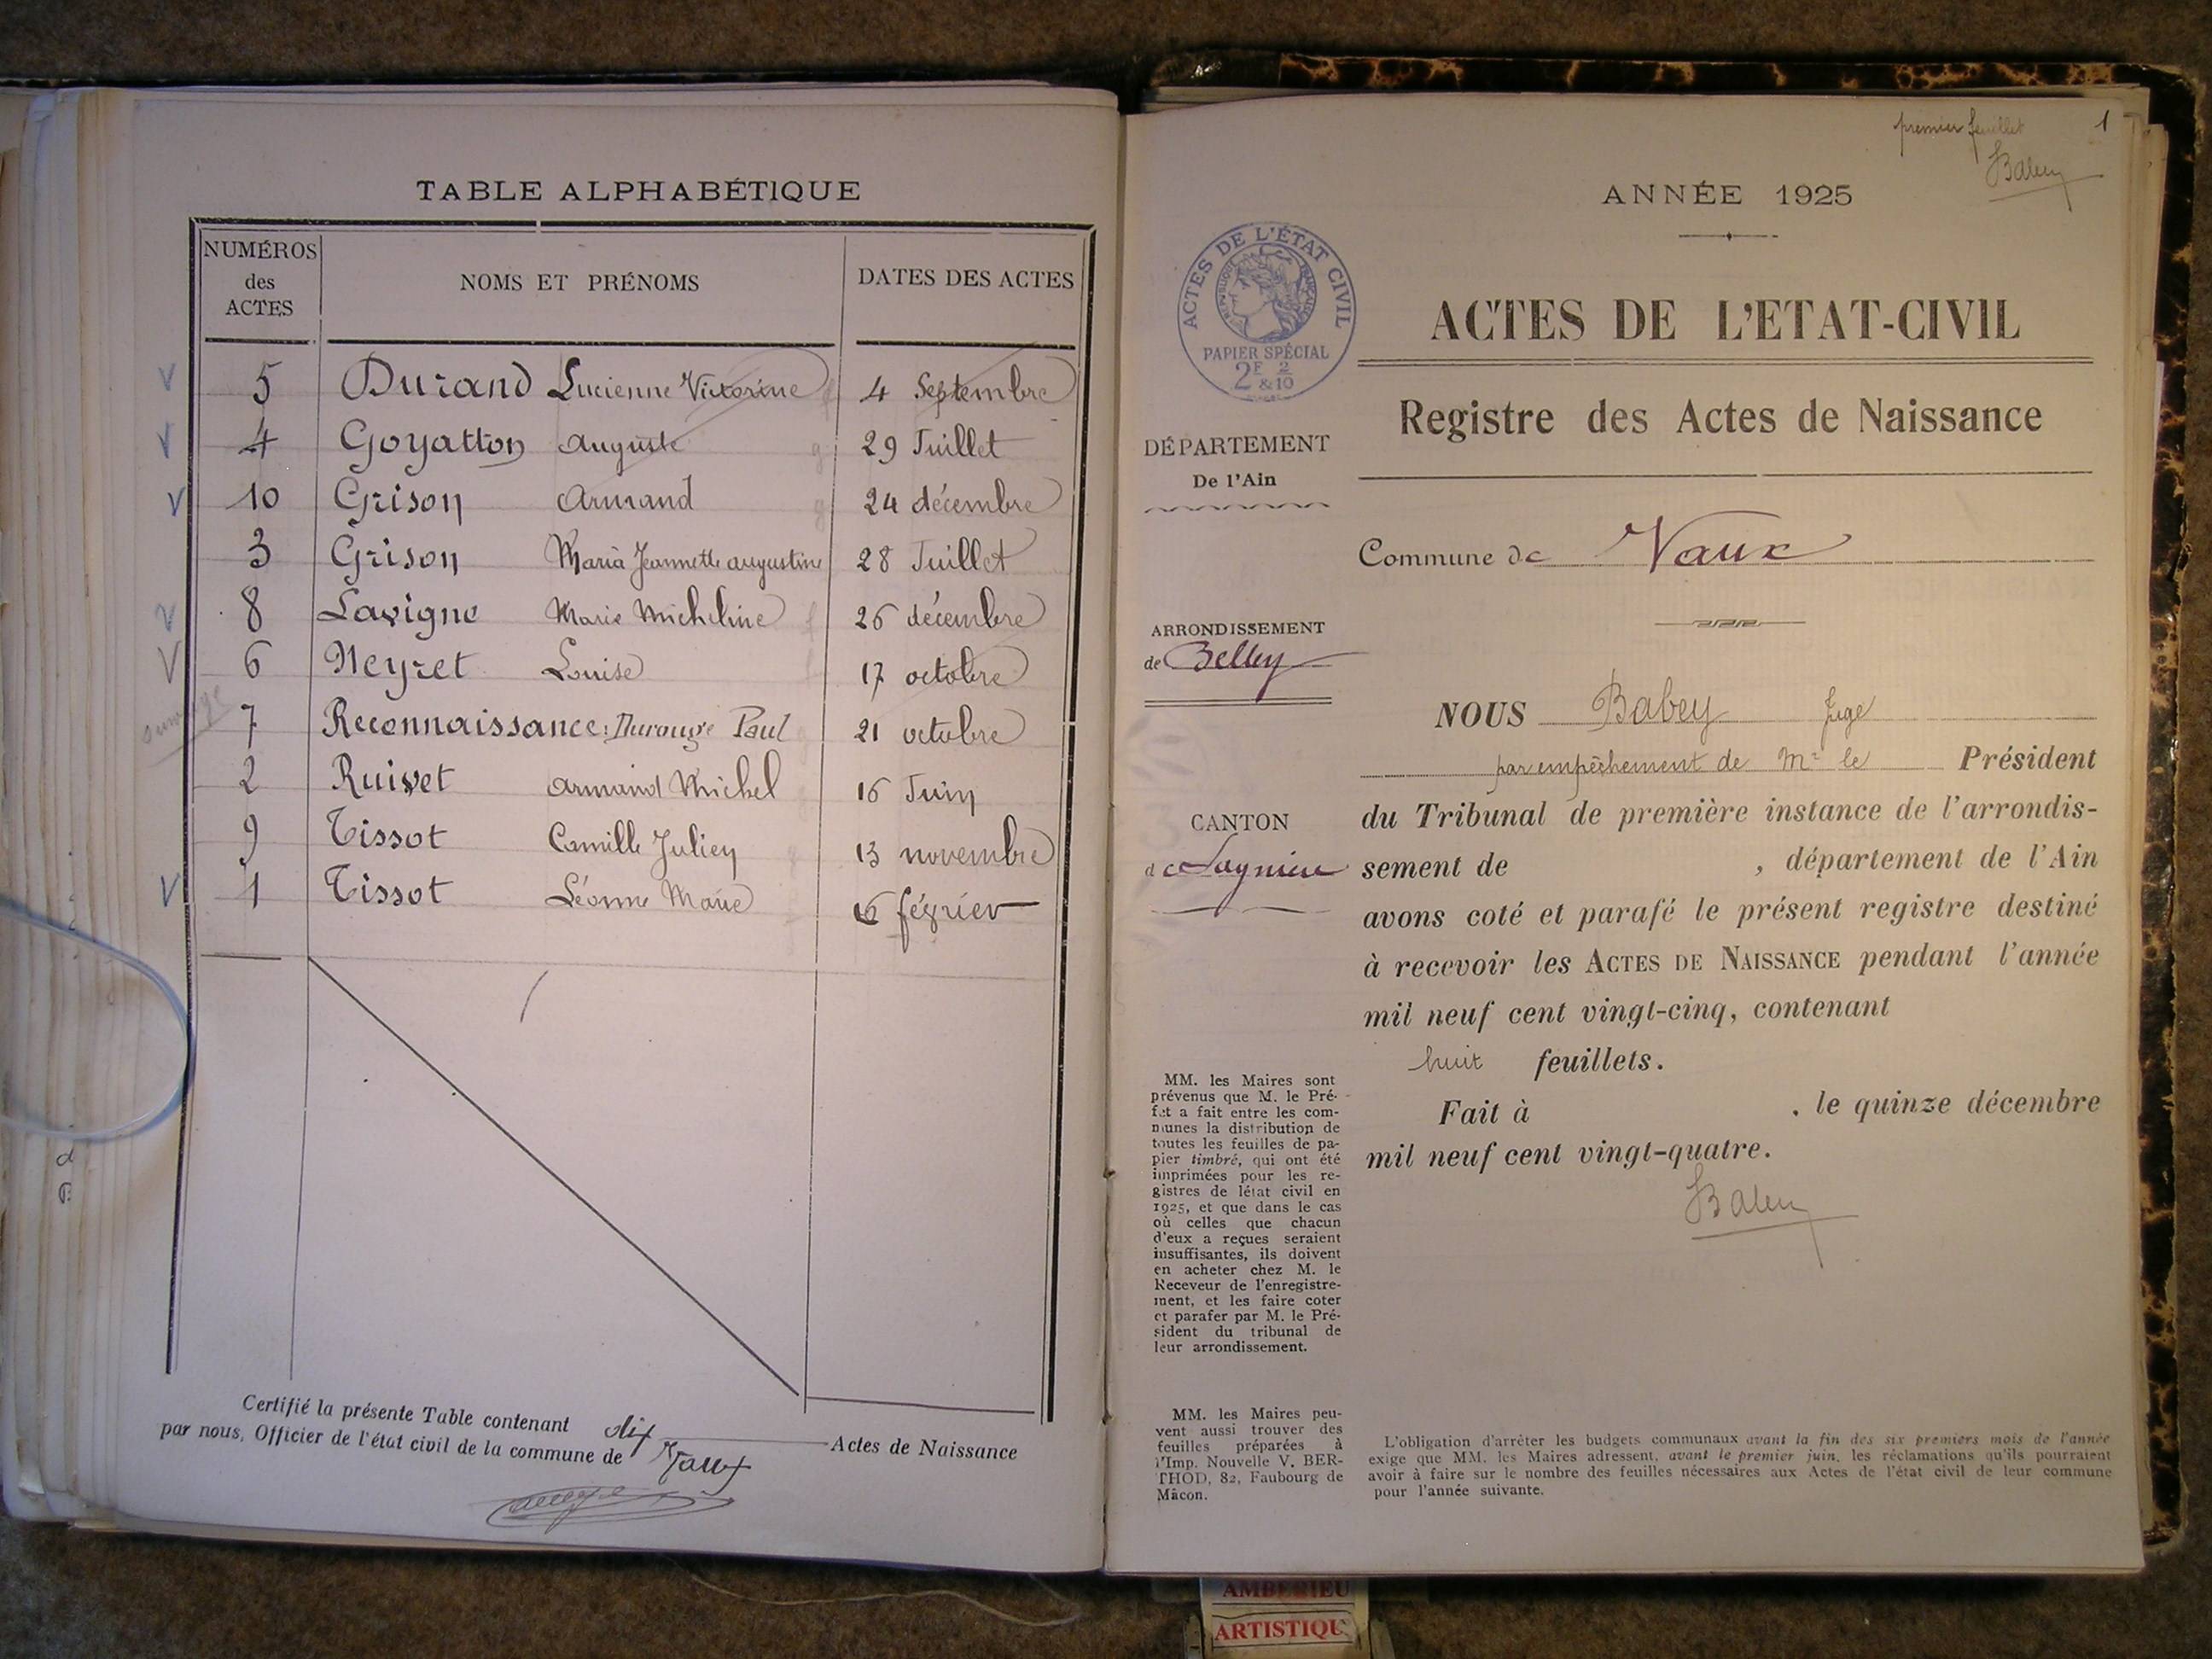 TABLE ALPHABÉTIQUE
NUMÉROS des ACTES
NOMS ET PRÉNOMS
DATES DES ACTES
5 Durand Lucienne Victorine 4 Septembre
4 Goyatton Auguste 29 Juillet
10 Grison Armand 24 décembre
3 Grison Maria Jeannette augustine 28 Juillet
8 Lavigne Marie Micheline 26 décembre
6 Neyret Louise 17 octobre
7 Reconnaissance: Durouge Paul 21 octobre
2 Ruivet Armand Michel 16 Juin
9 Tissot Camille Julien 13 novembre
1 Tissot Léonne Marie 16 février
Certifié la présente Table contenant dix Actes de Naissance
par nous, Officier de l'état civil de la commune de Vaux
premier feuillet 1
Babey
ANNÉE 1925
ACTES DE L'ÉTAT CIVIL
RÉPUBLIQUE FRANÇAISE
PAPIER SPÉCIAL
2F 2
&10
ACTES DE L'ETAT-CIVIL
Registre des Actes de Naissance
DÉPARTEMENT
De l'Ain
Commune de Vaux
ARRONDISSEMENT
de Belley
CANTON
de Lagnieu
NOUS Babey Juge
par empêchement de Mr le Président
du Tribunal de première instance de l'arrondis-
sement de , département de l'Ain
avons coté et parafé le présent registre destiné
à recevoir les ACTES DE NAISSANCE pendant l'année
mil neuf cent vingt-cinq, contenant
huit feuillets.
Fait à , le quinze décembre
mil neuf cent vingt-quatre.
Babey
MM. les Maires sont
prévenus que M. le Pré-
fet a fait entre les com-
munes la distribution de
toutes les feuilles de pa-
pier timbré, qui ont été
imprimées pour les re-
gistres de létat civil en
1925, et que dans le cas
où celles que chacun
d'eux a reçues seraient
insuffisantes, ils doivent
en acheter chez M. le
Receveur de l'enregistre-
ment, et les faire coter
et parafer par M. le Pré-
sident du tribunal de
leur arrondissement.
MM. les Maires peu-
vent aussi trouver des
feuilles préparées à
l'Imp. Nouvelle V. BER-
THOD, 82, Faubourg de
Mâcon.
L'obligation d'arrêter les budgets communaux avant la fin des six premiers mois de l'année
exige que MM. les Maires adressent, avant le premier juin, les réclamations qu'ils pourraient
avoir à faire sur le nombre des feuilles nécessaires aux Actes de l'état civil de leur commune
pour l'année suivante.
AMBERIEU
ARTISTIQU